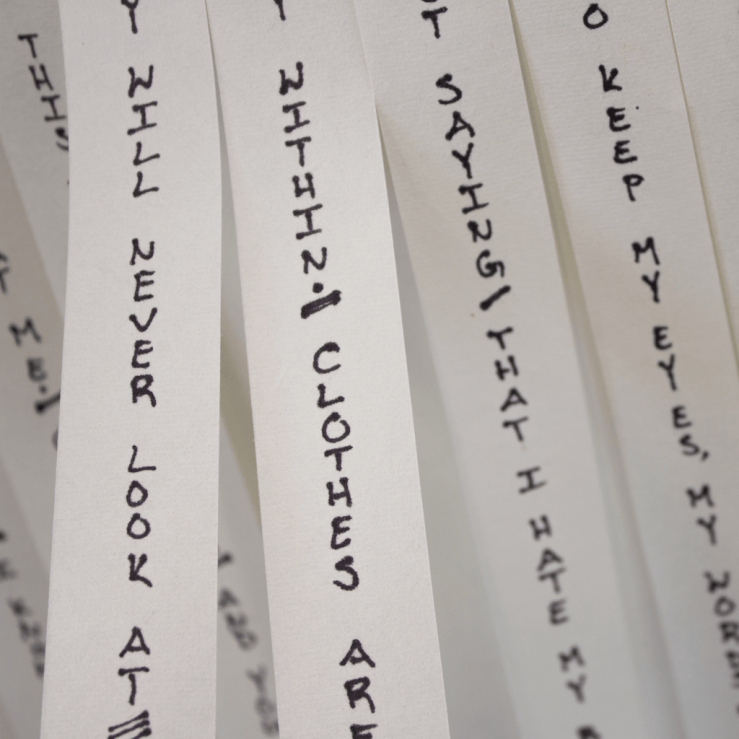 THIS
T ME.
Y WILL NEVER LOOK AT
AND YOU
Y WITHIN. CLOTHES ARE
T SAYING THAT I HATE MY
O KEEP MY EYES, MY WORE